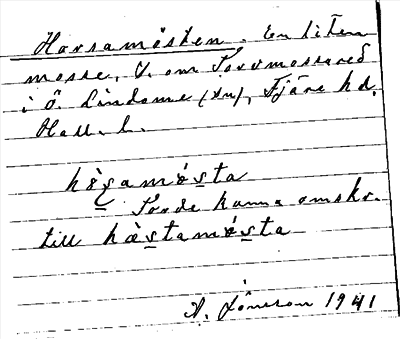 Horsamåsken. En liten
mosse, V. om Torvmossared
i Ö. Lindome (sn), Fjäre hd.
Hall. l.
hòʂamǿʂta
Torde kunna omskr.
till hæ̀ʂtamǿʂta
A. Jönsson 1941